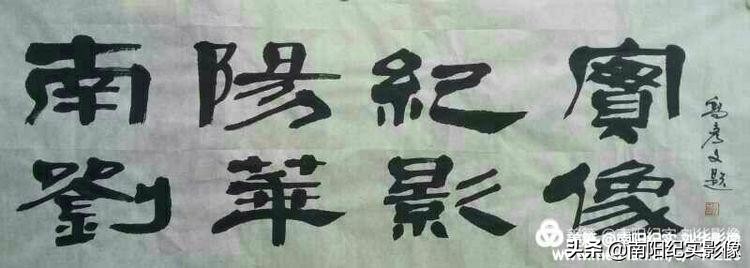 南陽紀實
劉華影像
题
头条 @南阳纪实影像